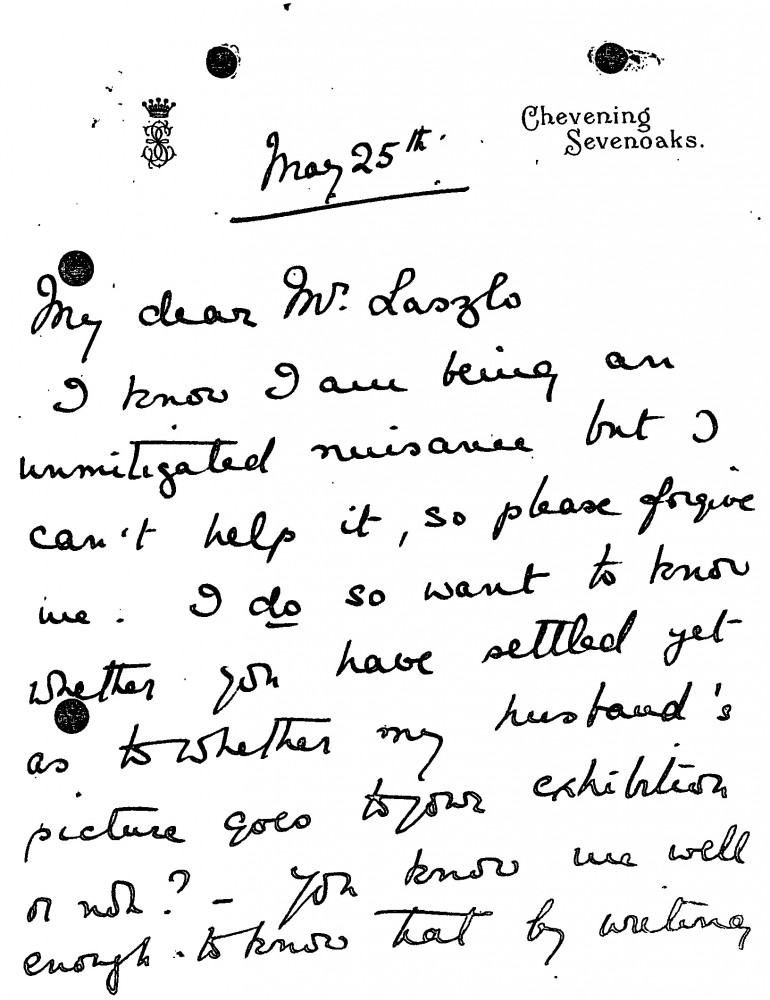 Chevening
Sevenoaks.
May 25th.
My dear Mr. Laszlo
I know I am being an
unmitigated nuisance but I
can't help it, so please forgive
me. I do so want to know
whether you have settled yet
as to whether my husband's
picture goes to your exhibition
or not? – You know me well
enough to know that by writing